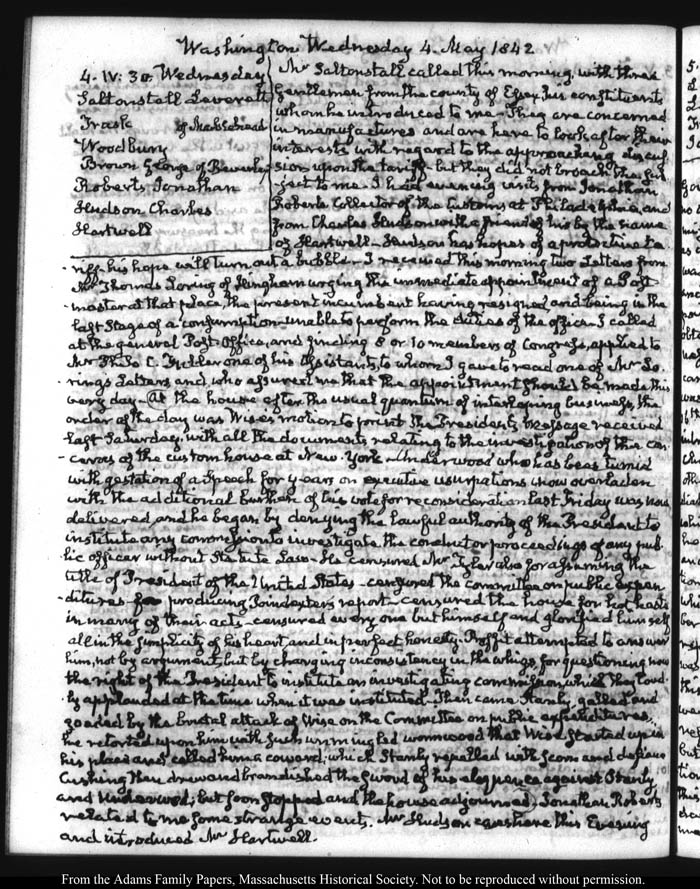 Washington Wednesday 4. May 1842
4. IV: 30. Wednesday
Saltonstall Leverett
Trask of Marblehead
Woodbury
Brown George of Beverley
Roberts Jonathan
Hudson Charles
Hartwell
Mr Saltonstall called this morning, with three
Gentlemen from the county of Essex, his constituents
whom he introduced to me. They are concerned
in manufactures and are here to look after their
interests with regard to the approaching discus-
sion upon the tariff but they did not broach the sub-
ject to me. I had evening visits from Jonathan
Roberts Collector of the Customs at Philadelphia, and
from Charles Hudson with a friend of his by the name
of Hartwell. Hudson has hopes of a protective ta-
riff. his hope will turn out a bubble. I received this morning two Letters from
Mr Thomas Loring of Hingham urging the immediate appointment of a Post-
master at that place, the present incumbent having resigned and being in the
last stage of a consumption unable to perform the duties of the office. I called
at the general Post-Office, and finding 8 or 10 members of Congress, applied to
Mr Philo C. Fuller one of his assistants, to whom I gave to read one of Mr Lo-
ring's Letters and, who assured me that the appointment should be made this
very day. At the house after the usual quantum of interloping business, the
order of the day was Wise's motion to print the President's Message received
last Saturday, with all the documents relating to the investigation of the con-
cerns of the custom house at New-York. Underwood who has been turgid
with gestation of a Speech for years on executive usurpations now overladen
with the additional burthen of his vote for reconsideration last Friday was now
delivered and he began by denying the lawful authority of the President to
institute any commission to investigate the conduct or proceedings of any pub-
lic officer without Statute Law. He censured Mr Tyler also for assuming the
title of President of the United States. censured the committee on public expen-
ditures for producing Poindexter's report. censured the house for hot haste
in many of their acts. censured every one but himself and glorified himself
all in the simplicity of his heart, and in perfect honesty. Proffit attempted to answer
him, not by argument, but by charging inconsistency in the whigs, for questioning now
the right of the President to institute an investigating commission, which they loud-
ly applauded at the time when it was instituted. Then came Stanly galled and
goaded by the brutal attack of Wise on the Committee on public expenditures,
he retorted upon him with such unmingled wormwood that Wise started up in
his place and called him a coward; which Stanly repelled with scorn and defiance
Cushing then drew and brandished the sword of his eloquence against Stanly,
and Underwood; but soon stopped and the house adjourned. Jonathan Roberts
related to me some strange events. Mr Hudson was here this Evening
and introduced Mr Hartwell.
From the Adams Family Papers, Massachusetts Historical Society. Not to be reproduced without permission.